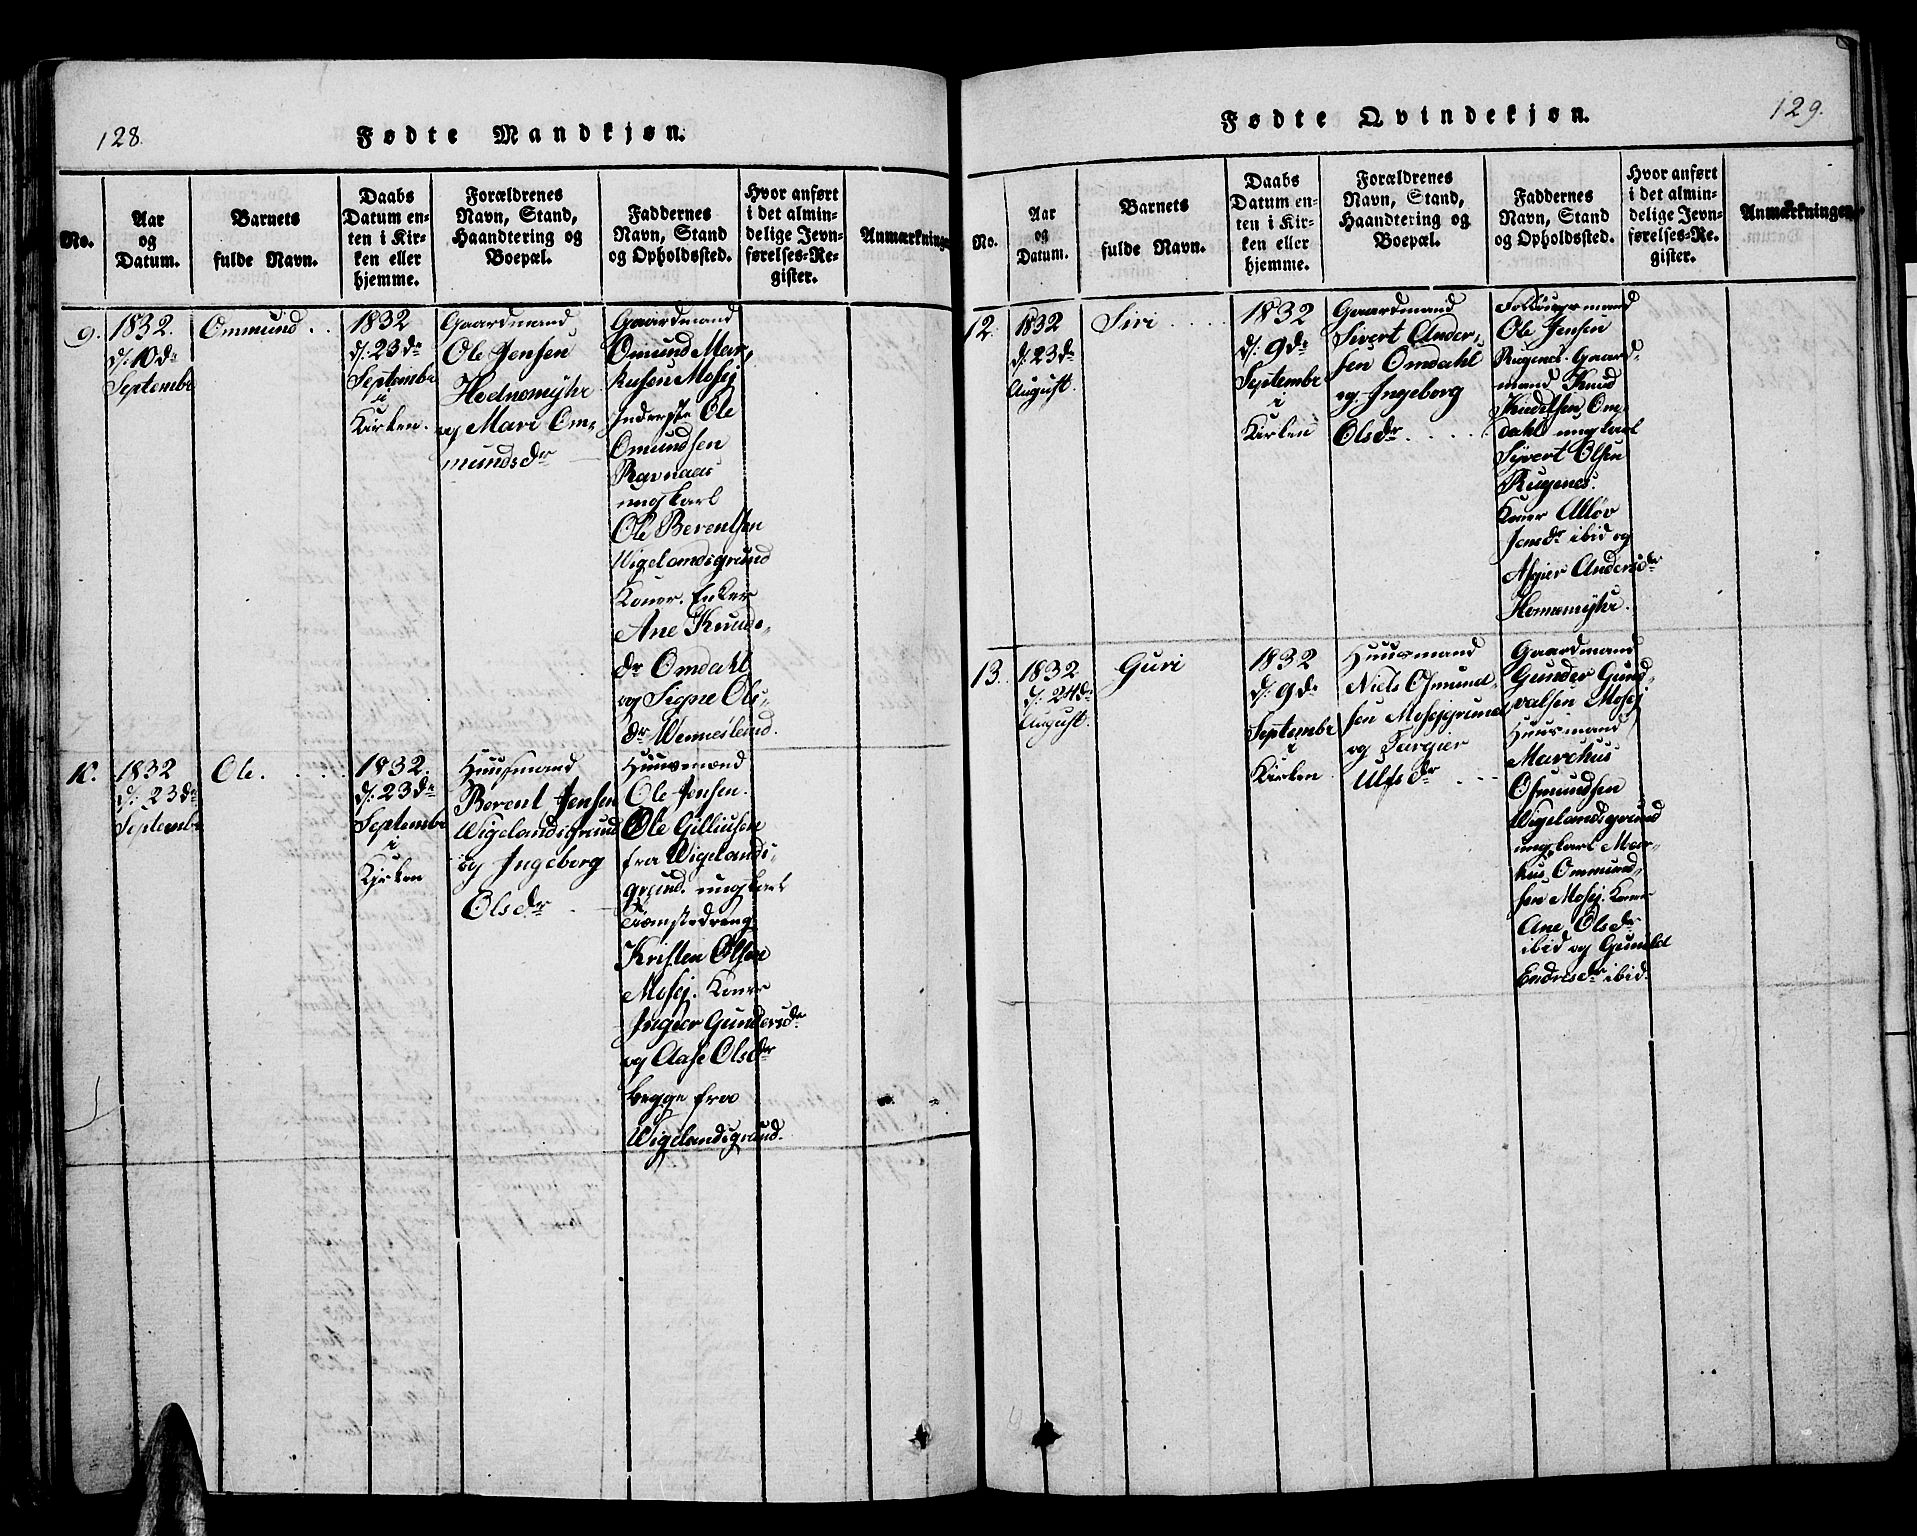 128.
Fødte Mandkjøn.
No.
Aar
og
Datum.
Barnets
fulde Navn.
Daabs
Datum en-
ten i Kir-
ken eller
hjemme.
Forældrenes
Navn, Stand,
Haandtering og
Boepæl.
Faddernes
Navn, Stand
og Opholdssted.
Hvor anført
i det almin-
delige Jevn-
førelses-Re-
gister.
Anmærkninger
9.
1832.
d: 10de
Septembr
Ommund . .
1832
d: 23de
Septembr
i
Kirken.
Gaardmand
Ole Jensen
og Mari Om-
mundsdr
Gaardmand
Omund Mar-
kusen Mosej
Inderste Ole
Omundsen
Ravnaas
ungkarl
Ole Berentsen
Wigelandsgrund
Koner. Enker
Ane Knuds-
dr Omdahl
og Signe Ols-
dr Wenneslund.
10.
1832
d: 23de
Septembr
Ole. . . .
1832.
d: 23de
Septembr
i
Kirken
Huusmand
Berent Jensen
Wigelandsgrund
og Ingeborg
Olsdr
Huusmænd
Ole Jensen.
Ole Gilliusen
fra Wigelands-
grund. ungkarl
Kristen Olsen
Mosej. Koner
Inger Gundersdr
og Aase Olsdr
begge fra
Wigelandsgrund.
129.
Fødte Qvindekjøn.
No.
Aar
og
Datum.
Barnets
fulde Navn.
Daabs
Datum en-
ten i Kir-
ken eller
hjemme.
Forældrenes
Navn, Stand,
Haandtering og
Boepæl.
Faddernes
Navn, Stand
og Opholdssted.
Hvor anført
i det almin-
delige Jevn-
førelses-Re-
gister.
Anmærkninger
12.
1832
d: 23de
August.
Siri . . . .
1832
d: 9de
Septembr
i
Kirken
Gaardmand
Sivert Ander-
sen Omdahl
og Ingeborg
Olsdr . . . .
Ole Jensen
Rugenes. Gaard-
mand Knud
Knudtsen Om-
dahl ungkarl
Sivert Olsen
Rugenes.
Koner Alløv
Jensdr ibid og
Asgier Andersdr
13.
1832
d: 24de
August.
Guri
1832
d: 9de
Septembr
i
Kirken
Huusmand
Niels Osmund-
sen Mosejgrund
og Targier
Ulfsdr . . .
Gaardmand
Gunder Gund-
valsen Mosej
Huusmand
Marchus
Osmundsen
Wigelandsgrund
ungkarl Mar-
kus Ommund-
sen Mosej. Koner
Ane Olsdr
ibid og Gunild
Endresdr ibid.